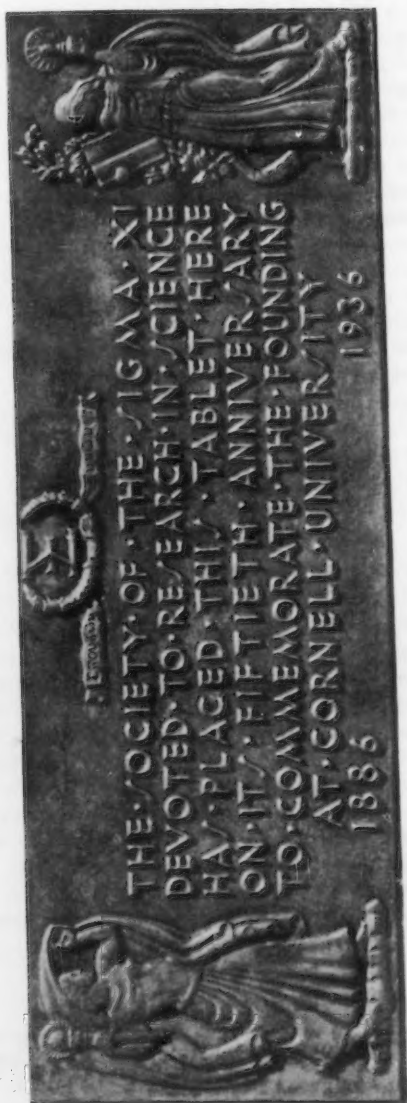 THE·SOCIETY·OF·THE·SIGMA·XI
DEVOTED·TO·RESEARCH·IN·SCIENCE
HAS·PLACED·THIS·TABLET·HERE
ON·ITS·FIFTIETH·ANNIVERSARY
TO·COMMEMORATE·THE·FOUNDING
AT·CORNELL·UNIVERSITY
1886 1936